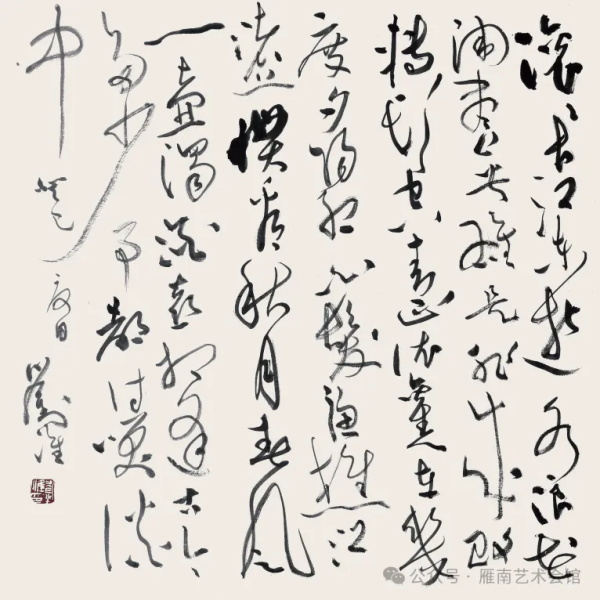 滚滚长江东逝水浪花
淘尽英雄是非成败
转头空青山依旧在几
度夕阳红白发渔樵江
渚上惯看秋月春风
一壶浊酒喜相逢古今
多少事都付笑谈
中 癸巳 夏日
公众号·雁南艺术会馆